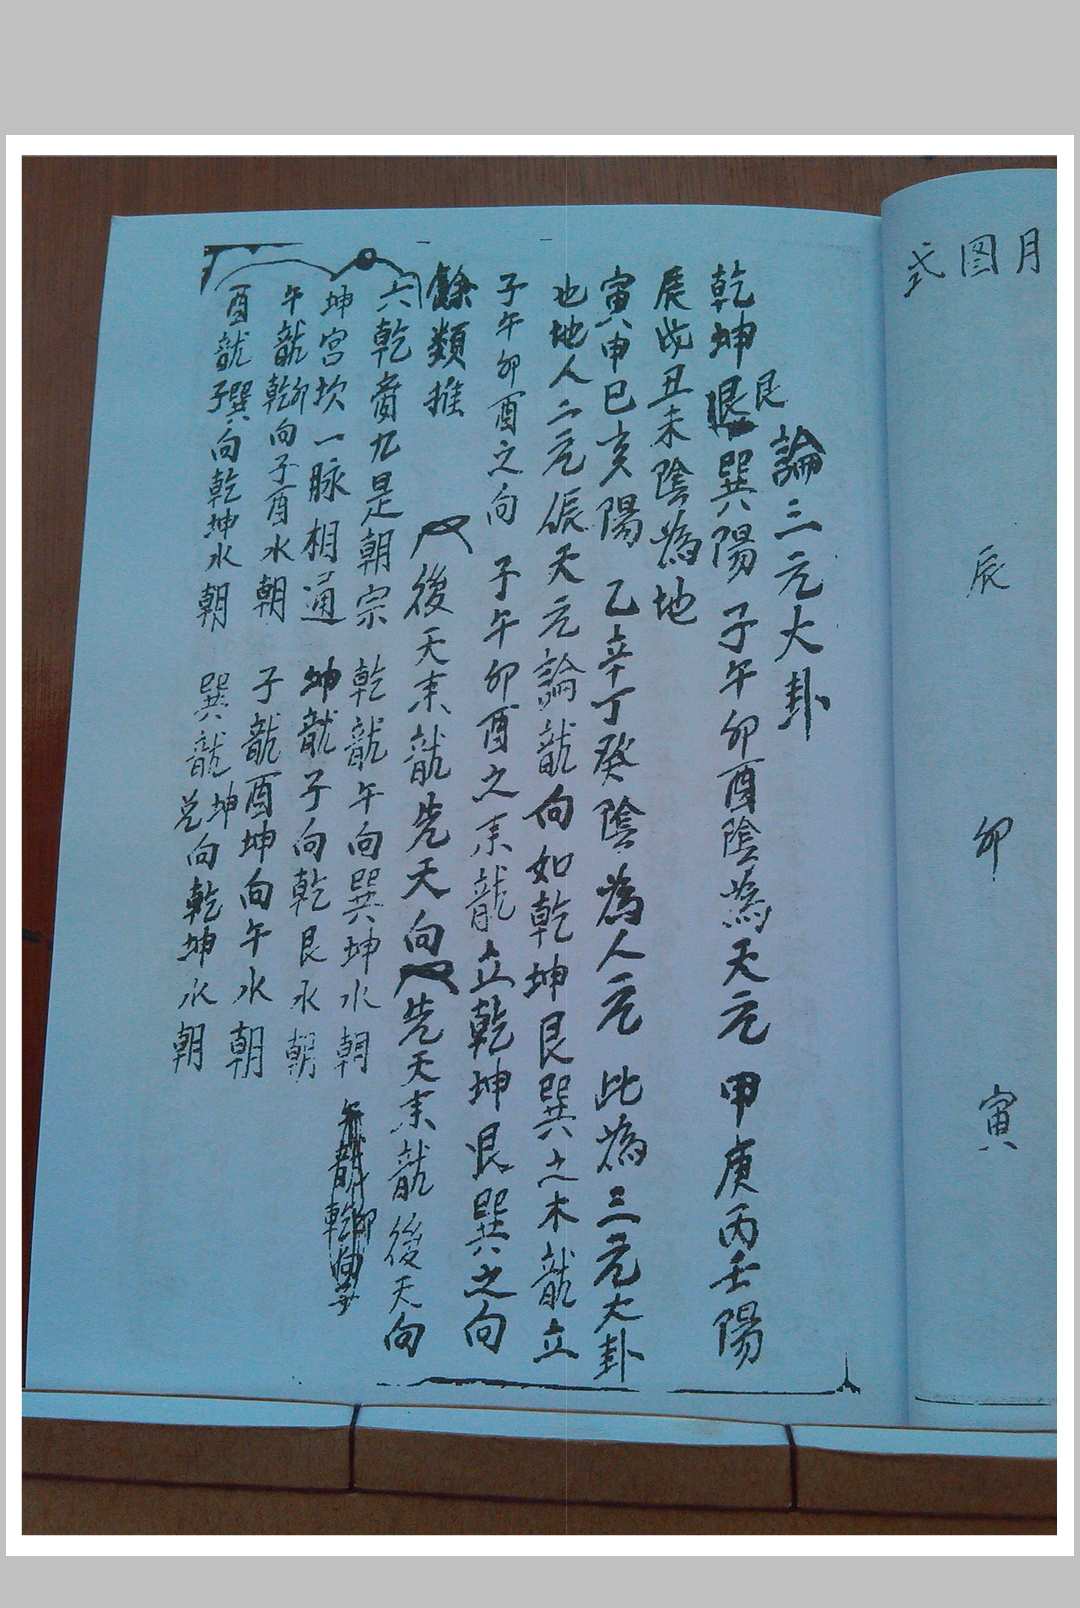 月图式
辰
卯
寅
論三元大卦
乾坤艮巽陽 子午卯酉陰為天元 甲庚丙壬陽
辰此丑未陰為地
寅申巳亥陽 乙辛丁癸陰為人元 此為三元大卦
也地人二元 天元論龍向如乾坤艮巽之木龍立
子午卯酉之向 子午卯酉之耒龍立乾坤退巽之向
餘類推 後天耒龍先天向 先天耒龍後天向
六乾賓九是朝宗 乾龍午向巽坤水朝
坤宮坎一脉相通 坤龍子向乾艮水朝
午龍乾卯向子酉水朝 子龍酉坤向午水朝
酉龍子巽向乾坤水朝 巽龍兌坤向乾坤水朝